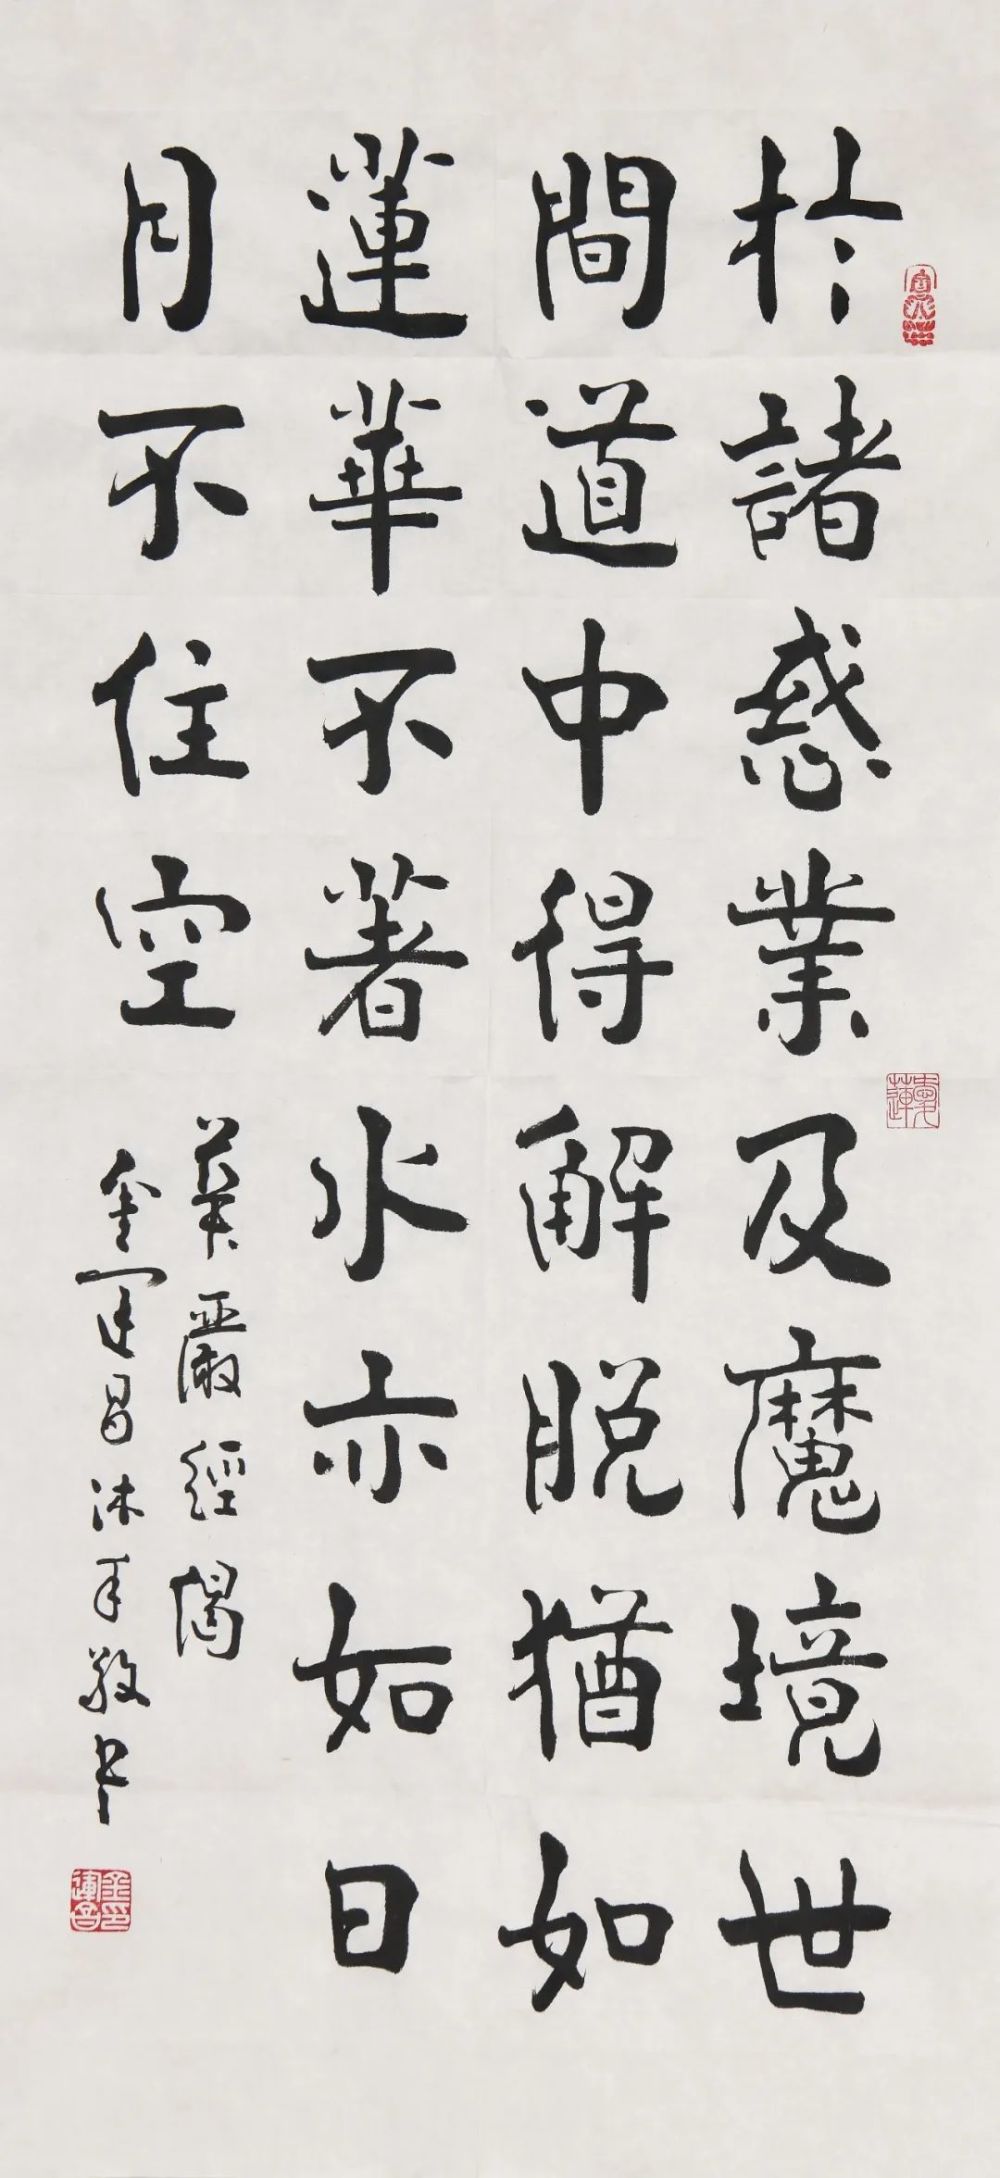 於諸惑業及魔境世
間道中得解脫猶如
蓮華不著水亦如日
月不住空
華嚴經偈
金運昌沐手敬書
愛蓮
金運昌印